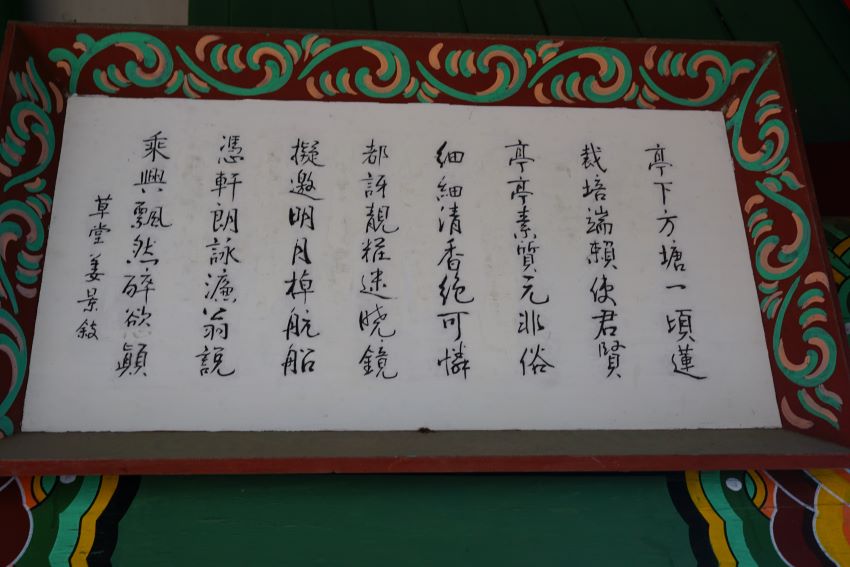 亭下方塘一頃蓮
栽培端賴使君賢
亭亭素質元非俗
細細清香絶可憐
都訝靚粧迷曉鏡
擬邀明月棹航船
憑軒朗詠濂翁說
乘興飄然醉欲顚
草堂 姜景敍